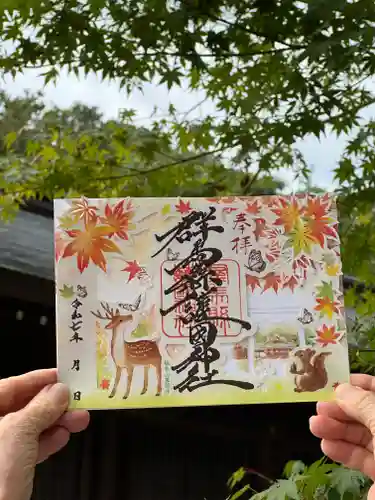 奉拝
群馬縣護國神社
令和七年 月 日